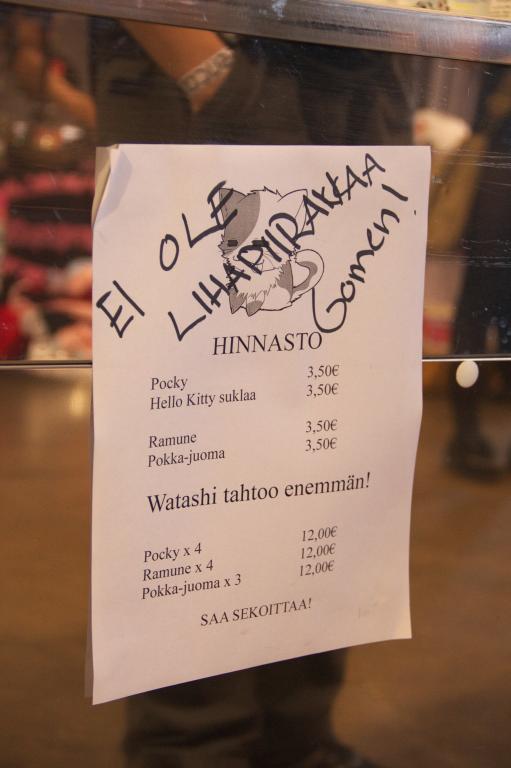 EI OLE
LIHAPIIRAKKAA
Gomen!
HINNASTO
Pocky 3,50€
Hello Kitty suklaa 3,50€
Ramune 3,50€
Pokka-juoma 3,50€
Watashi tahtoo enemmän!
Pocky x 4 12,00€
Ramune x 4 12,00€
Pokka-juoma x 3 12,00€
SAA SEKOITTAA!